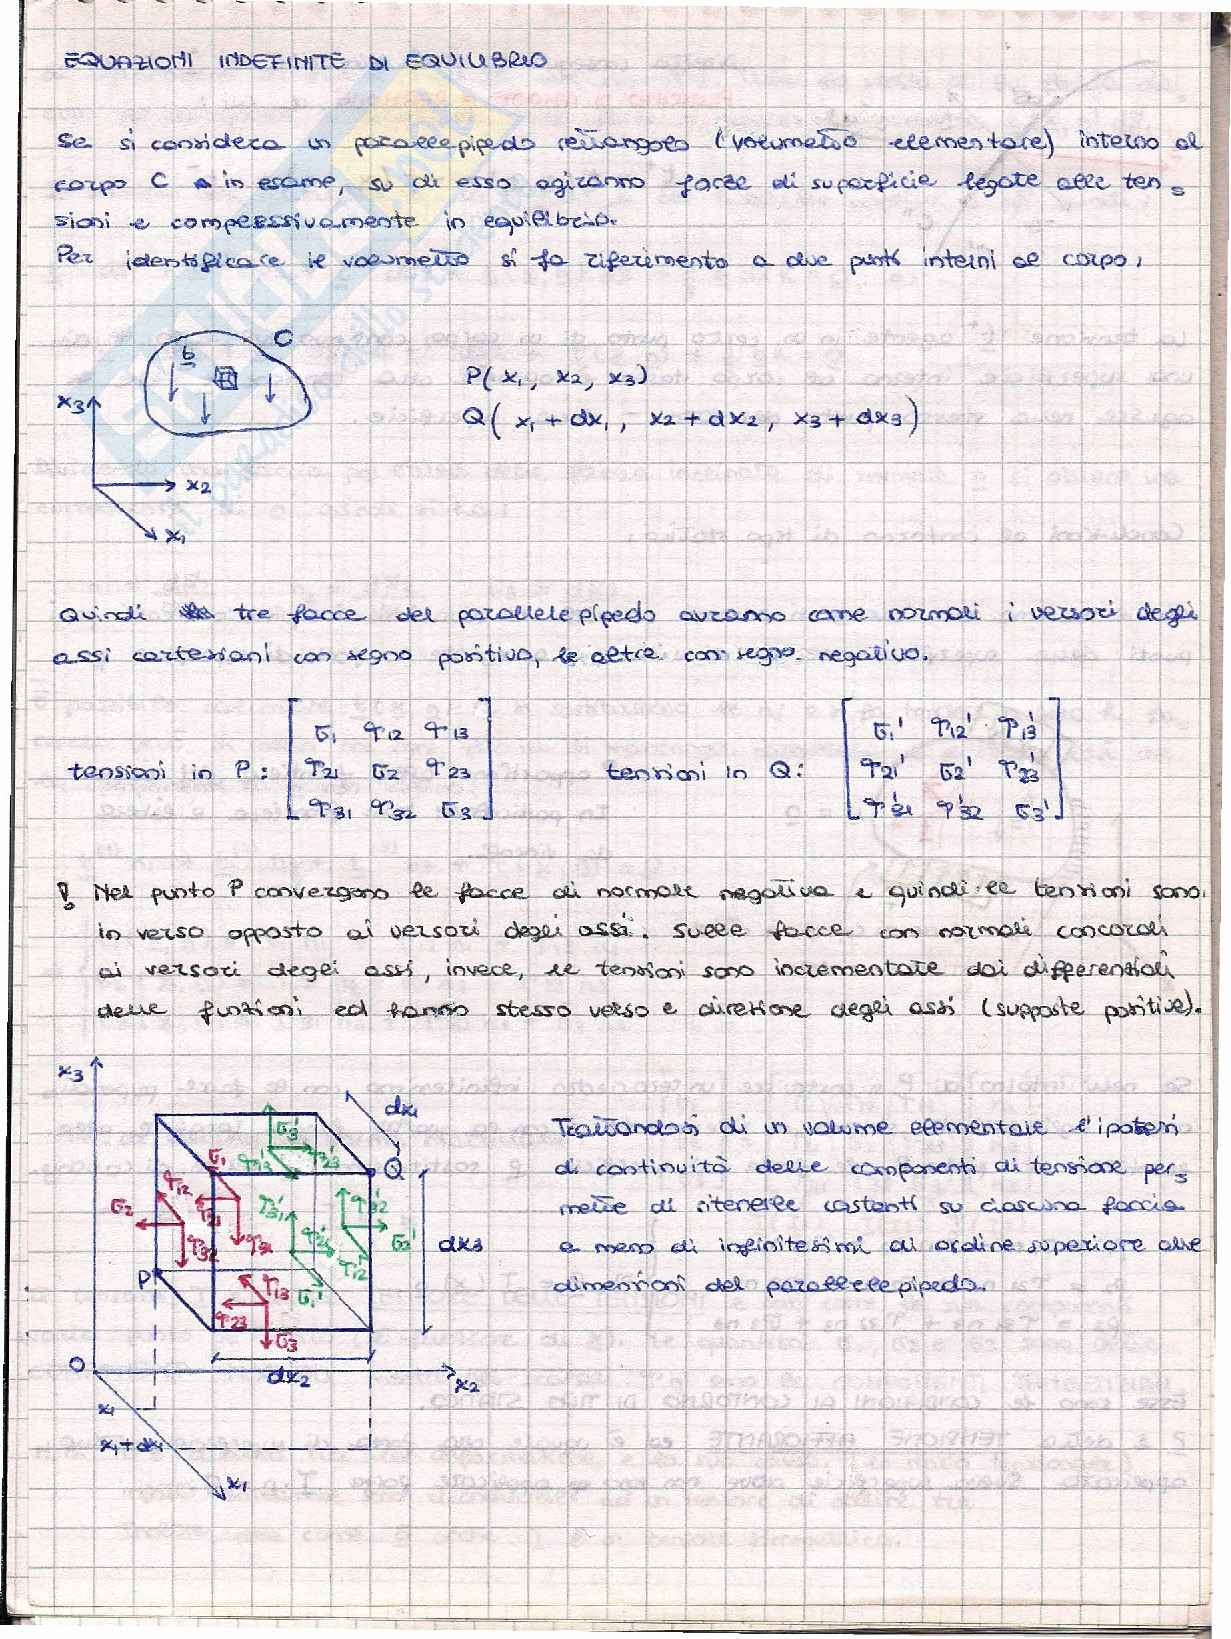 EQUAZIONI INDEFINITE DI EQUILIBRIO
Se si considera un parallelepipedo rettangolo (volumetto elementare) interno al
corpo C in esame, su di esso agiranno forze di superficie legate alle ten=
sioni e complessivamente in equilibrio.
Per identificare il volumetto si fa riferimento a due punti interni al corpo,
C
b
x3
x2
x1
P( x1, x2, x3)
Q( x1 + dx1, x2 + dx2, x3 + dx3)
Quindi tre facce del parallelepipedo avranno come normali i versori degli
assi cartesiani con segno positivo, le altre con segno negativo.
tensioni in P: [ σ1 τ12 τ13
τ21 σ2 τ23
τ31 τ32 σ3 ]
tensioni in Q: [ σ1' τ12' τ13'
τ21' σ2' τ23'
τ31' τ32' σ3' ]
! Nel punto P convergono le facce di normale negativa e quindi le tensioni sono
in verso opposto ai versori degli assi. Sulle facce con normali concordi
ai versori degli assi, invece, le tensioni sono incrementate dai differenziali
delle funzioni ed hanno stesso verso e direzione degli assi (supposte positive).
x3
dx1
σ3'
τ13' τ23'
σ1
Q
τ12
τ21
σ2
τ32
τ31
τ31'
τ21'
σ1'
τ32'
σ2'
τ12'
dx3
P
τ13
τ23
σ3
O
dx2
x2
x1
x1+dx1
x1
Trattandosi di un volume elementare l'ipotesi
di continuità delle componenti di tensione per=
mette di ritenerle costanti su ciascuna faccia
a meno di infinitesimi di ordine superiore alle
dimensioni del parallelepipedo.